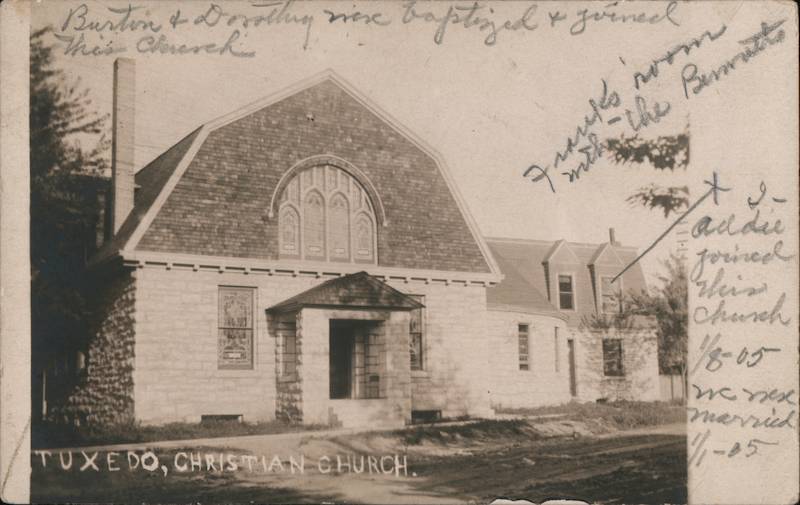 Burton & Dorothy were baptized & joined
this Church
Frank's room
with the Bennetts
x I-
addie
joined
this
Church
1/8-05
we were
married
1/1-05
TUXEDO, CHRISTIAN CHURCH.